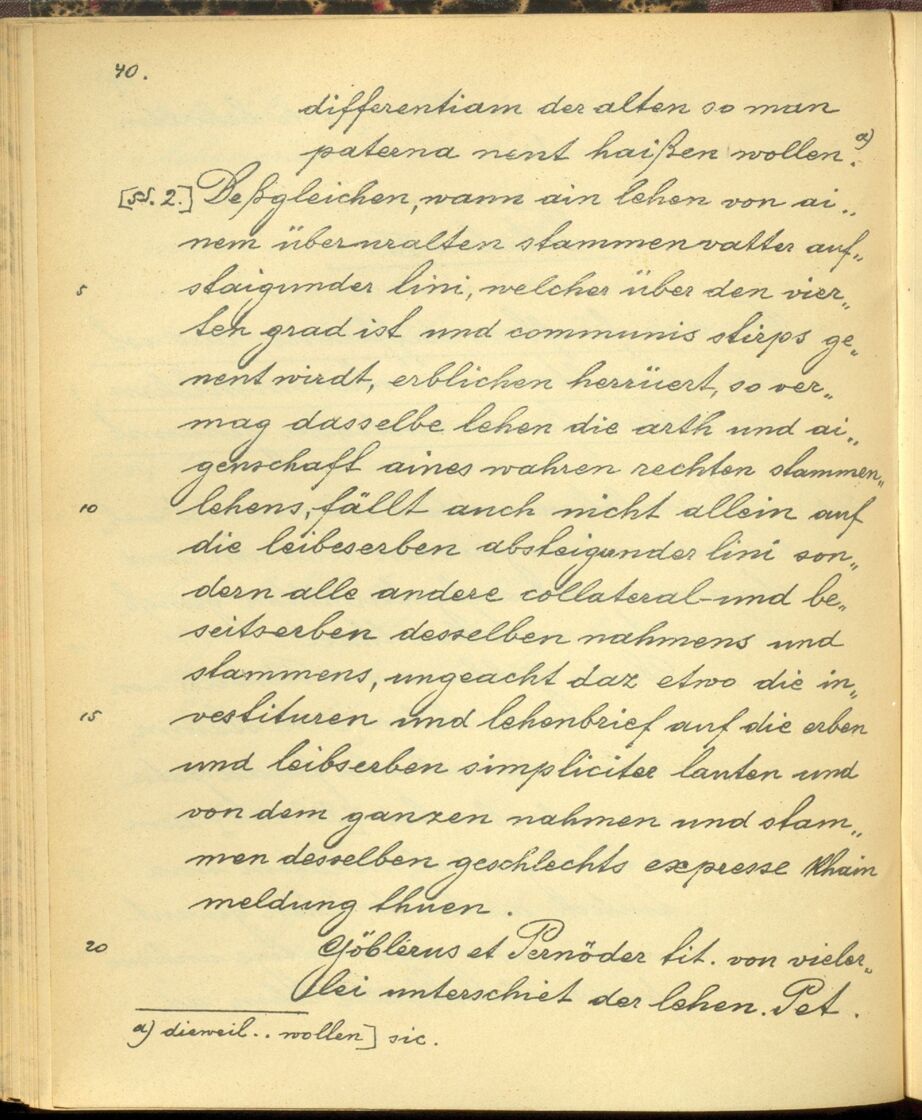 40.
differentiam der alten so man
paterna nent haißen wollen.a)
[§. 2.] Deßgleichen, wann ain lehen von ai„
nem überuralten stammenvatter auf„
5 staigunder lini, welcher über den vier„
ten grad ist und communis stirps ge„
nent wirdt, erblichen herrüert, so ver„
mag dasselbe lehen die arth und ai„
genschaft aines wahren rechten stammen„
10 lehens, fällt auch nicht allein auf
die leibeserben absteigunder lini son„
dern alle andere collateral- und be„
seitserben desselben nahmens und
stammens, ungeacht daz etwo die in„
15 vestituren und lehenbrief auf die erben
und leibserben simpliciter lauten und
von dem ganzen nahmen und stam„
men desselben geschlechts expresse khain
meldung thuen.
20 Göblerus et Pernöder tit. von vieler„
lei unterschiet der lehen. Pet.
a) dieweil.. wollen] sic.